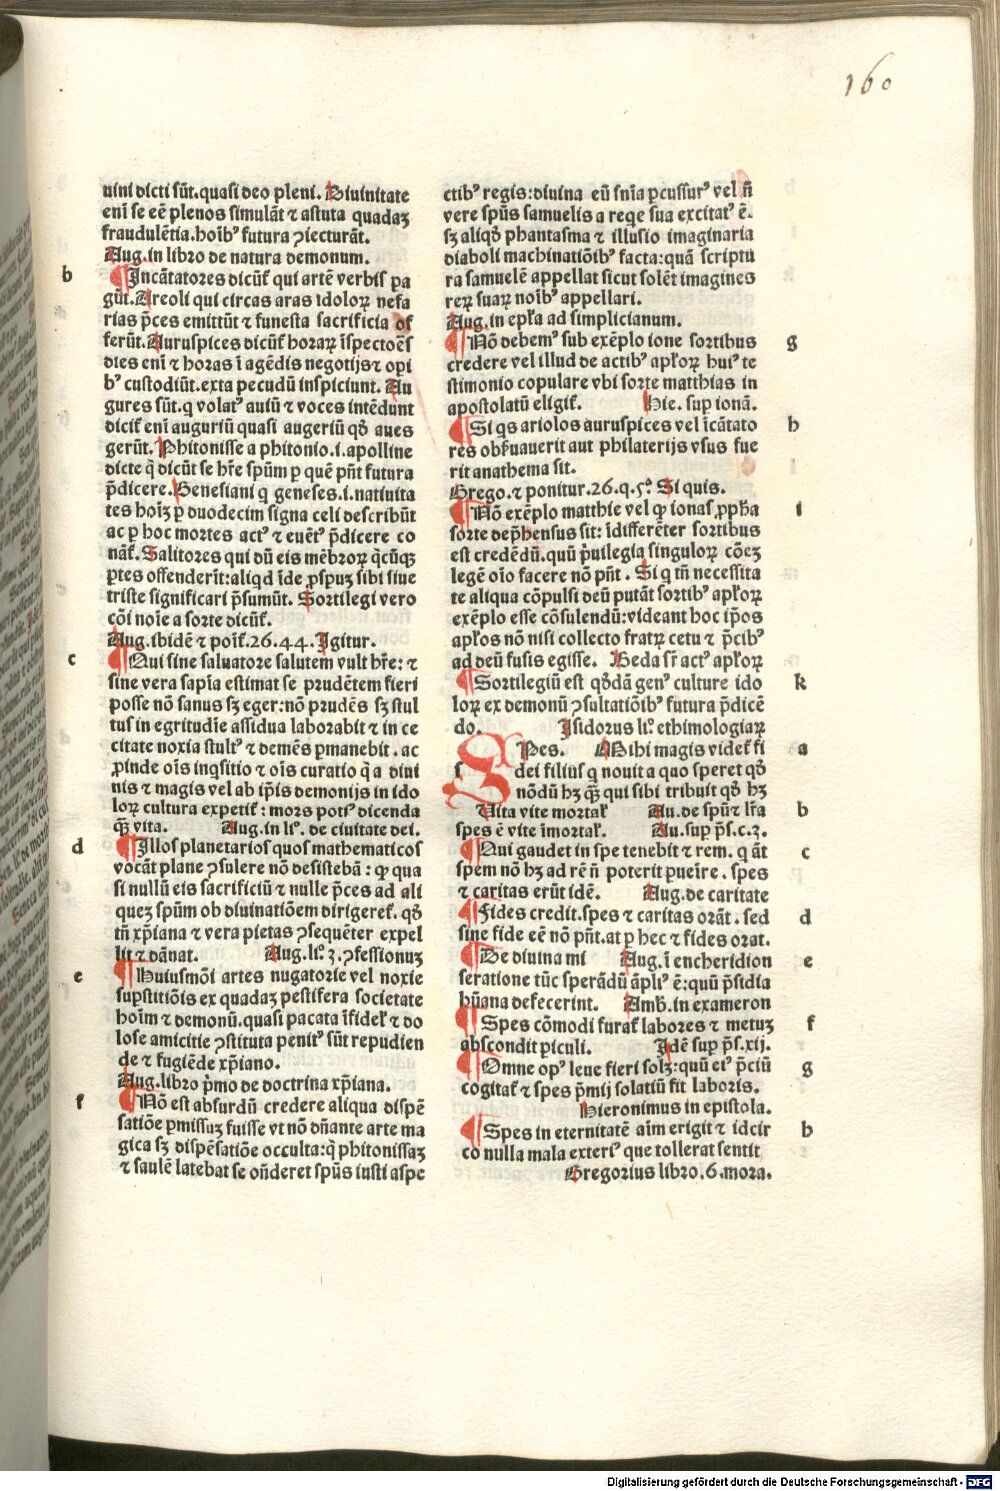 160
uini dicti sūt.quasi deo pleni. Diuinitate
enī se eē plenos simulāt ⁊ astuta quadaꝫ
fraudulētia.hoībꝰ futura ꝯiecturāt.
Aug.in libro de natura demonum.
b
¶Incātatores dicūt̉ qui artē verbis pa
gūt.Areoli qui circas aras idoloꝝ nefa
rias p̄ces emittūt ⁊ funesta sacrificia of
ferūt.Auruspices dicūt̉ horaꝝ īspectoēs
dies enī ⁊ horas ī agēdis negotijs ⁊ opi
bꝰ custodiūt.exta pecudū inspiciunt. Au
gures sūt.q volatꝰ auiū ⁊ voces intēdunt
dicit̉ enī auguriū quasi augeriū qð aues
gerūt. Phitonisse a phitonio.i.apolline
dicte q̄ dicūt se hr̄e spūm ꝑ quē pn̄t futura
p̄dicere. Genesiani q geneses.i.natiuita
tes hoīꝫ ꝑ duodecim signa celi describūt
ac ꝑ hoc mortes actꝰ ⁊ euētꝰ p̄dicere co
nāt̉. Salitores qui dū eis mēbroꝝ q̄cūqꝫ
ꝑtes offenderīt:aliqd īde ꝓspuꝫ sibi siue
triste significari p̄sumūt. Sortilegi vero
cōi noīe a sorte dicūt̉.
Aug.ibidē ⁊ poīt̉.26.44. Igitur.
c
¶Qui sine saluatore salutem vult hr̄e: ⁊
sine vera sapīa estimat se prudētem fieri
posse nō sanus sꝫ eger:nō prudēs sꝫ stul
tus in egritudīe assidua laborabit ⁊ in ce
citate noxia stultꝰ ⁊ demēs ꝑmanebit . ac
ꝓinde oīs inq̄sitio ⁊ oīs curatio q̄ a diui
nis ⁊ magis vel ab ip̄is demonijs in ido
loꝝ cultura expetit̉ : mors potiꝰ dicenda
qꝫ vita. Aug.in li°. de ciuitate dei.
d
¶Illos planetarios quos mathematicos
vocāt plane ꝯsulere nō desistebā : qꝛ qua
si nullū eis sacrificiū ⁊ nulle p̄ces ad ali
quez spūm ob diuinatiōem dirigeret̉. qð
tn̄ xp̄iana ⁊ vera pietas ꝯsequēter expel
lit ⁊ dānat. Aug.li°.3.ꝯfessionuꝫ
e
¶Huiusmōi artes nugatorie vel noxie
sup̄stitiōis ex quadaꝫ pestifera societate
hoīm ⁊ demonū.quasi pacata īfidel̉ ⁊ do
lose amicitie ꝯstituta penitꝰ sūt repudien
de ⁊ fugiēde xp̄iano.
Aug.libro p̄mo de doctrina xp̄iana.
f
¶Nō est absurdū credere aliqua dispē
satiōe ꝑmissuꝫ fuisse vt nō dn̄ante arte ma
gica sꝫ dispēsatiōe occulta:q̄ phitonissaꝫ
⁊ saulē latebat se on̄deret spūs iusti aspe
ctibꝰ regis:diuina eū sn̄ia ꝑcussurꝰ vel n̄
vere spūs samuelis a reqe sua excitatꝰ ē.
sꝫ aliqð phantasma ⁊ illusio imaginaria
diaboli machinatiōibꝰ facta:quā scriptu
ra samuelē appellat sicut solēt imagines
reꝝ suaꝝ noībꝰ appellari.
Aug.in epl̄a ad simplicianum.
g
¶Nō debemꝰ sub exēplo ione sortibus
credere vel illud de actibꝰ apl̄oꝝ huiꝰ te
stimonio copulare vbi sorte matthias in
apostolatū eligit̉. Hie. sup ionā.
h
¶Si qs ariolos auruspices vel īcātato
res obẜuauerit aut philaterijs vsus fue
rit anathema sit.
Grego.⁊ ponitur.26.q.5°. Si quis.
i
¶Nō exēplo matthie vel qꝛ ionas ꝓph̄a
sorte dep̄hensus sit: īdifferēter sortibus
est credēdū.quū p̄uilegia singuloꝝ cōeꝫ
legē oīo facere nō pn̄t . Si q tn̄ necessita
te aliqua cōpulsi deū putāt sortibꝰ apl̄oꝝ
exēplo esse cōsulendū:videant hoc ip̄os
apl̄os nō nisi collecto fratꝝ cetu ⁊ p̄cibꝰ
ad deū fusis egisse. Beda sr̄ actꝰ apl̄oꝝ
k
¶Sortilegiū est qðdā genꝰ culture ido
loꝝ ex demonū ꝯsultatiōibꝰ futura p̄dicē
do. Isidorus li°. ethimologiaꝝ
a
SPes. Mihi magis videt̉ fi
dei filius q nouit a quo speret qð
nōdū hꝫ qꝫ qui sibi tribuit qð hꝫ
b
Vita vite mortal̉ Au.de spū ⁊ lr̄a
spes ē vite īmortal̉. Au.sup ps̄.c.3.
c
¶Qui gaudet in spe tenebit ⁊ rem. q āt
spem nō hꝫ ad rē n̄ poterit p̄uenīre . spes
⁊ caritas erūt idē. Aug.de caritate
d
¶Fides credit.spes ⁊ caritas orāt. sed
sine fide eē nō pn̄t.at ꝑ hec ⁊ fides orat.
e
¶De diuina mi Aug.ī encheridion
seratione tūc sperādū āpliꝰ ē:quū p̄sidia
hūana defecerint. Amb̄.in exameron
f
¶Spes cōmodi furat̉ labores ⁊ metuꝫ
abscondit piculi. Idē sup ps̄.xij.
g
¶Omne opꝰ leue fieri solꝫ:quū eiꝰ p̄ciū
cogitat̉ ⁊ spes p̄mij solatiū fit laboris.
Hieronimus in epistola.
h
¶Spes in eternitatē aīm erigit ⁊ idcir
co nulla mala exteriꝰ que tollerat sentit
Gregorius libro.6.mora.
Digitalisierung gefördert durch die Deutsche Forschungsgemeinschaft - DFG